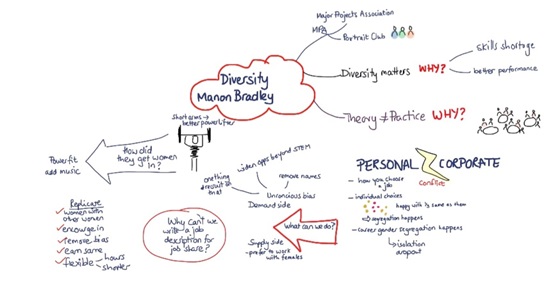 Major Projects Association
MPA
Portrait Club
Diversity
Manon Bradley
Diversity matters WHY?
skills shortage
better performance
Theory ≠ Practice WHY?
short arms →
better powerlifter
How did
they get women
in?
Powerfit
add music
Replicate
women with
other women
encourage in
remove bias
earn same
flexible
hours
shorter
widen apps beyond STEM
remove names
Unconscious bias
Demand side
Why can't we
write a job
description for
job share?
What can we do?
Supply side
- prefer to work
with females
PERSONAL CORPORATE
Conflict
- how you choose
a job
- individual choices
happy with is same as them
segregation happens
- career gender segregation happens
isolation
dropout